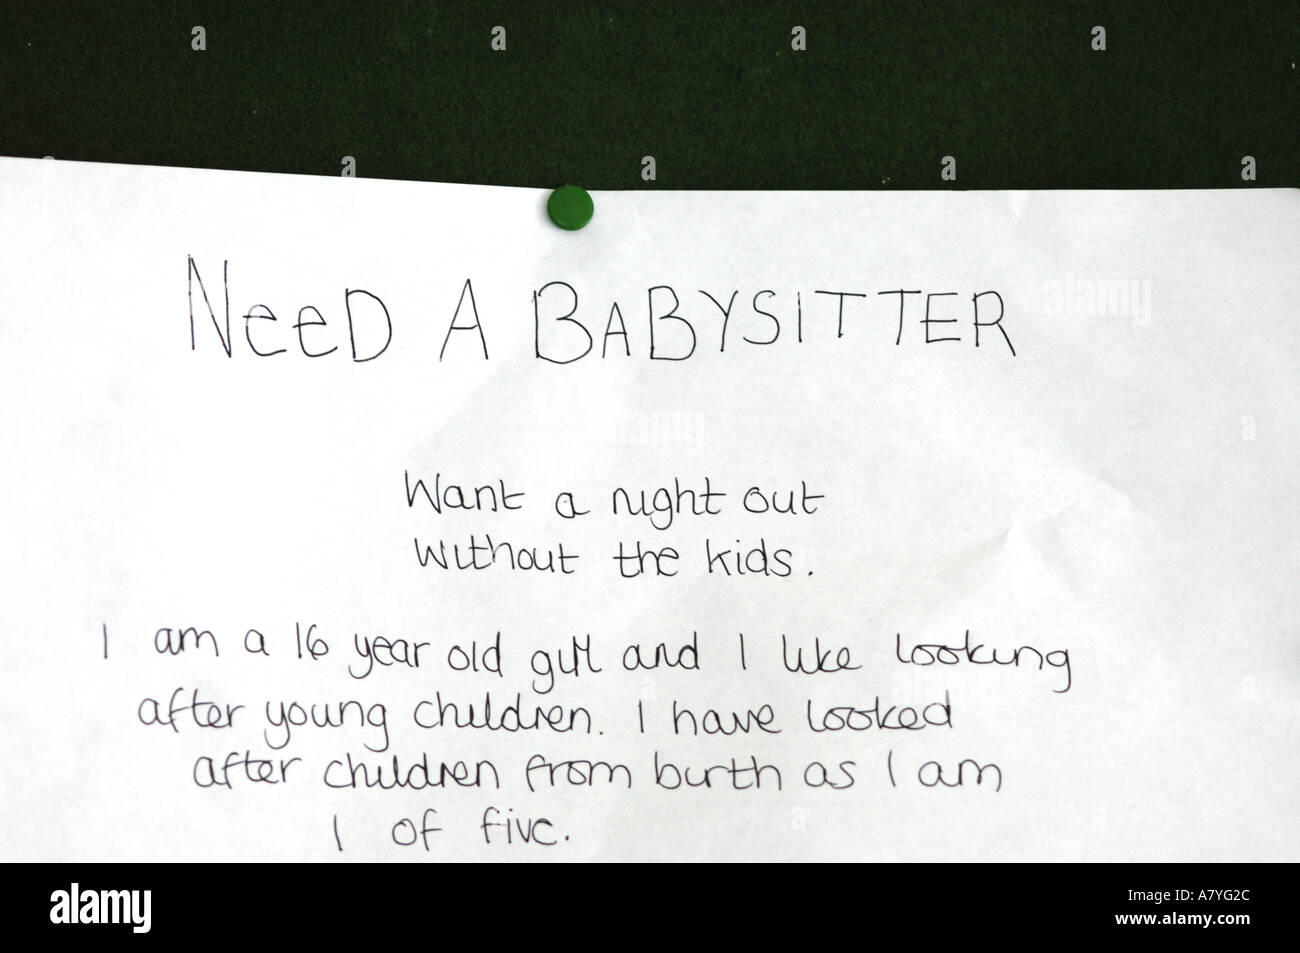 NeeD A BABYSITTER
Want a night out
without the kids.
I am a 16 year old girl and I like looking
after young children. I have looked
after children from birth as I am
1 of five.
alamy
Image ID: A7YG2C
www.alamy.com